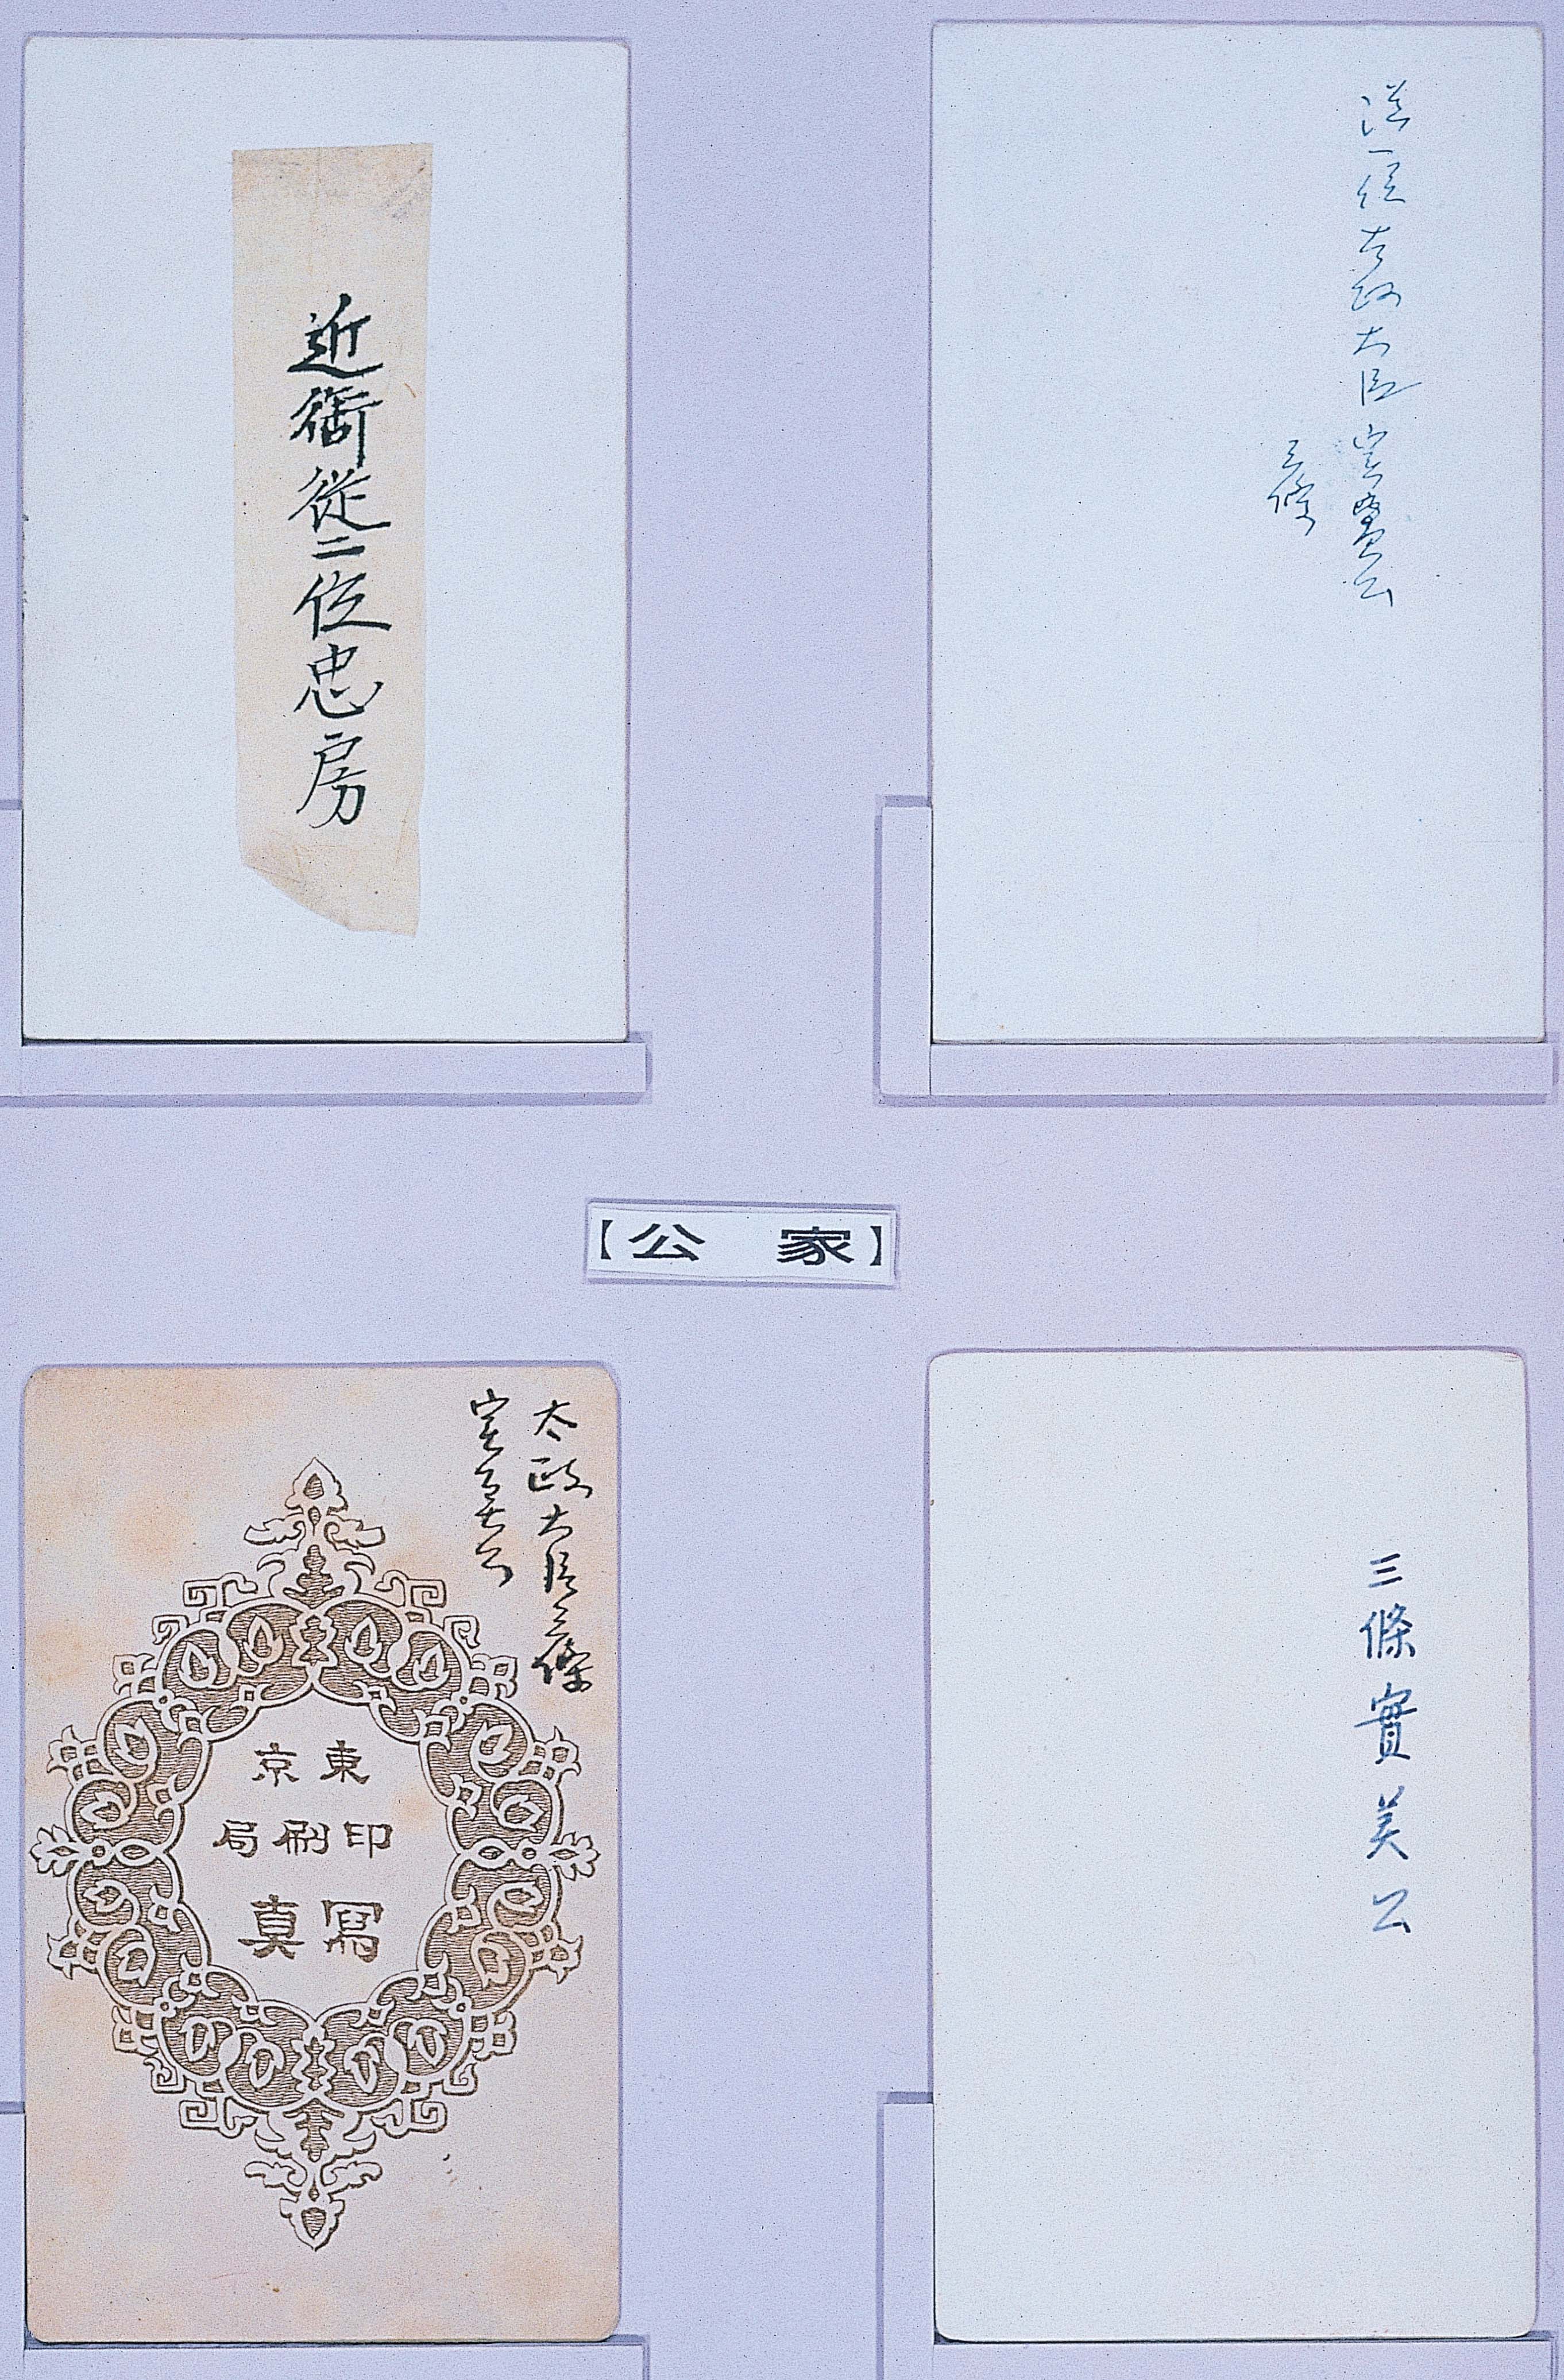 従一位太政大臣實美公
三條
近衛従二位忠房
【公 家】
三條實美公
太政大臣三條
実美公
東京
印刷局
寫真